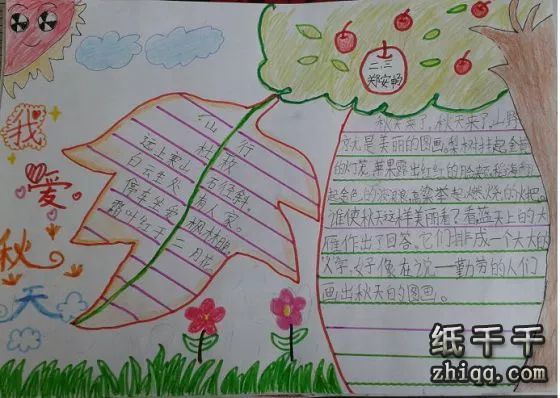 我
爱
秋
天
仙 行
杜牧
远上寒山 石径斜。
白云生处 有人家。
停车坐爱 枫林晚,
霜叶红于 二月花。
二、三
郑安畅
秋天来了,秋天来了,山野
就是美丽的图画,梨树挂起金黄
的灯笼,苹果露出红红的脸颊,稻海翻
起金色的波浪,高粱举起燃烧的火把。
谁使秋天这样美丽?看蓝天上的大
雁作出了回答,它们排成一个大大的
人字,好像在说——勤劳的人们
画出秋天的图画。
纸千千
zhiqq.com